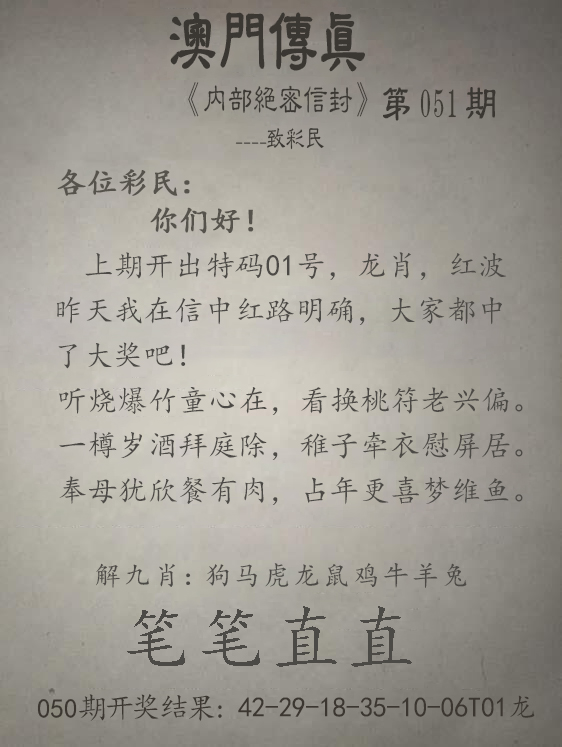 澳門傳眞
《内部絕密信封》第051期
----致彩民
各位彩民：
你们好！
上期开出特码01号，龙肖，红波
昨天我在信中红路明确，大家都中
了大奖吧！
听烧爆竹童心在，看换桃符老兴偏。
一樽岁酒拜庭除，稚子牵衣慰屏居。
奉母犹欣餐有肉，占年更喜梦维鱼。
解九肖：狗马虎龙鼠鸡牛羊兔
笔笔直直
050期开奖结果：42-29-18-35-10-06T01龙